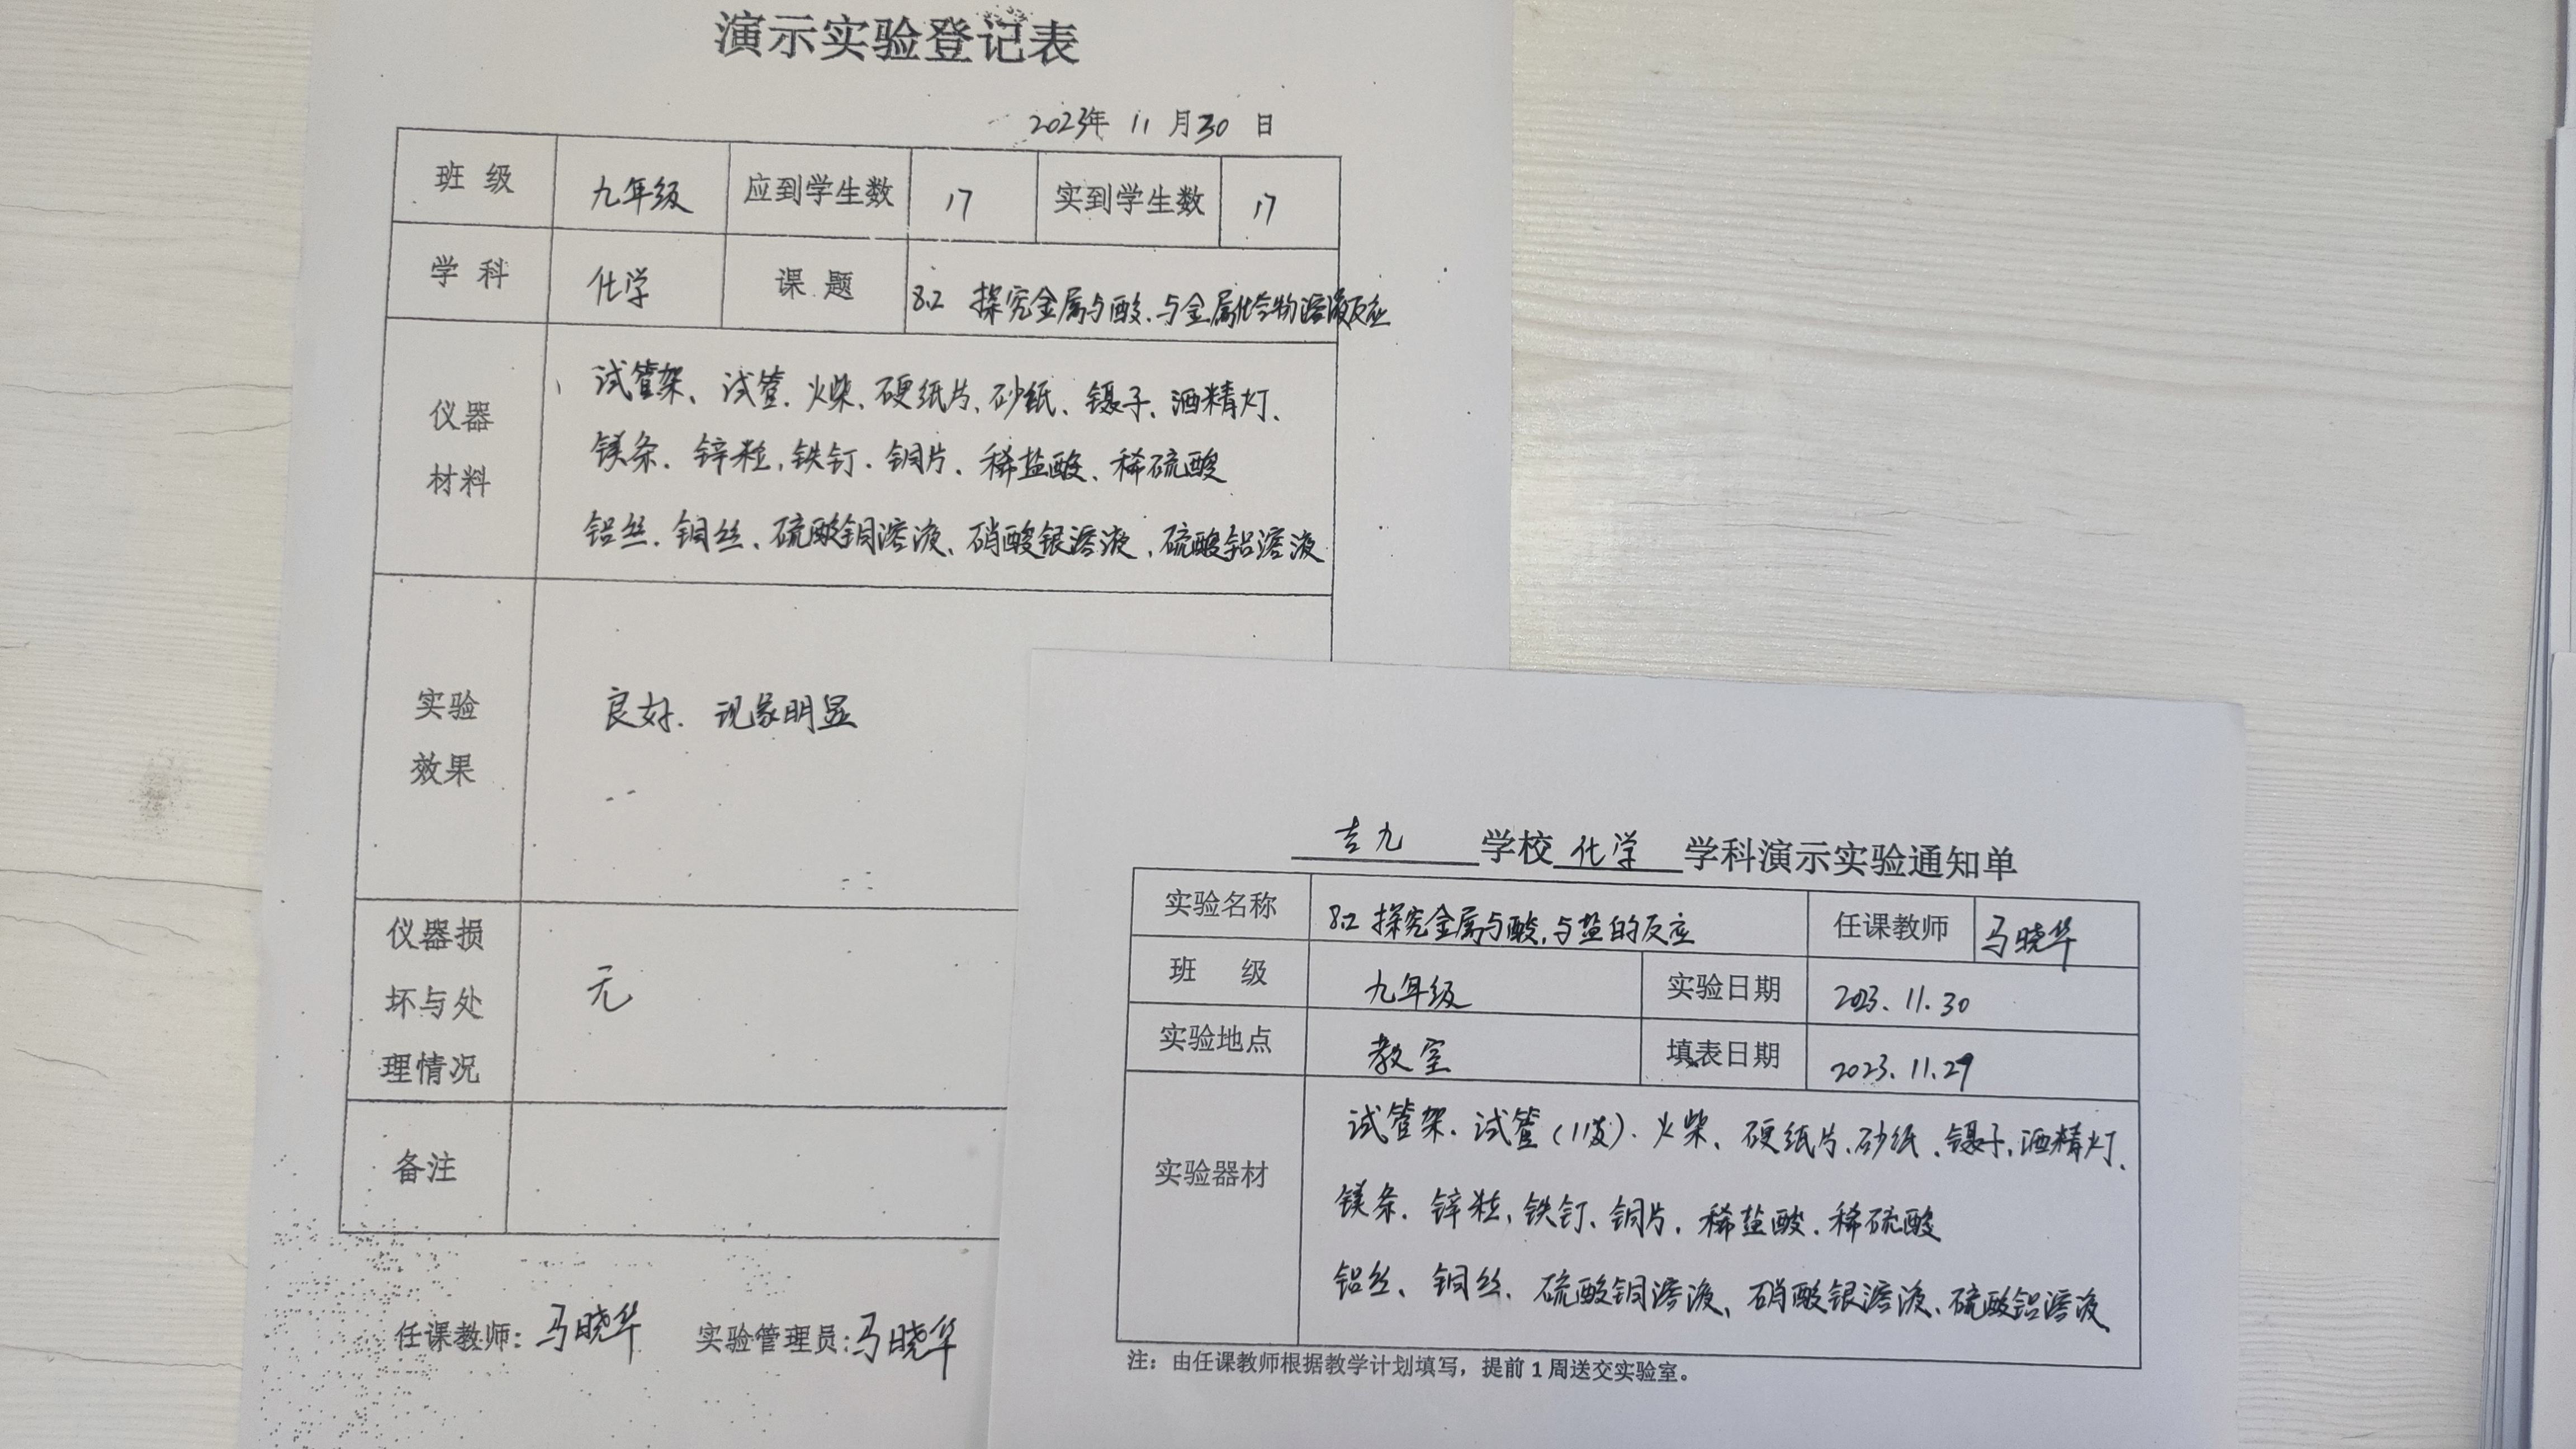 演示实验登记表
2023年 11 月 30 日
班 级 九年级 应到学生数 17 实到学生数 17
学 科 化学 课 题 8.2 探究金属与酸、与金属化合物溶液反应
仪器
材料
试管架、试管、火柴、硬纸片、砂纸、镊子、酒精灯、
镁条、锌粒、铁钉、铜片、稀盐酸、稀硫酸
铝丝、铜丝、硫酸铜溶液、硝酸银溶液、硫酸铝溶液
实验
效果
良好、现象明显
仪器损
坏与处
理情况
无
备注
任课教师：马晓华 实验管理员：马晓华
吉九 学校 化学 学科演示实验通知单
实验名称 8.2 探究金属与酸、与盐的反应 任课教师 马晓华
班 级 九年级 实验日期 2023.11.30
实验地点 教室 填表日期 2023.11.29
实验器材
试管架、试管（11支）、火柴、硬纸片、砂纸、镊子、酒精灯、
镁条、锌粒、铁钉、铜片、稀盐酸、稀硫酸
铝丝、铜丝、硫酸铜溶液、硝酸银溶液、硫酸铝溶液
注：由任课教师根据教学计划填写，提前 1 周送交实验室。